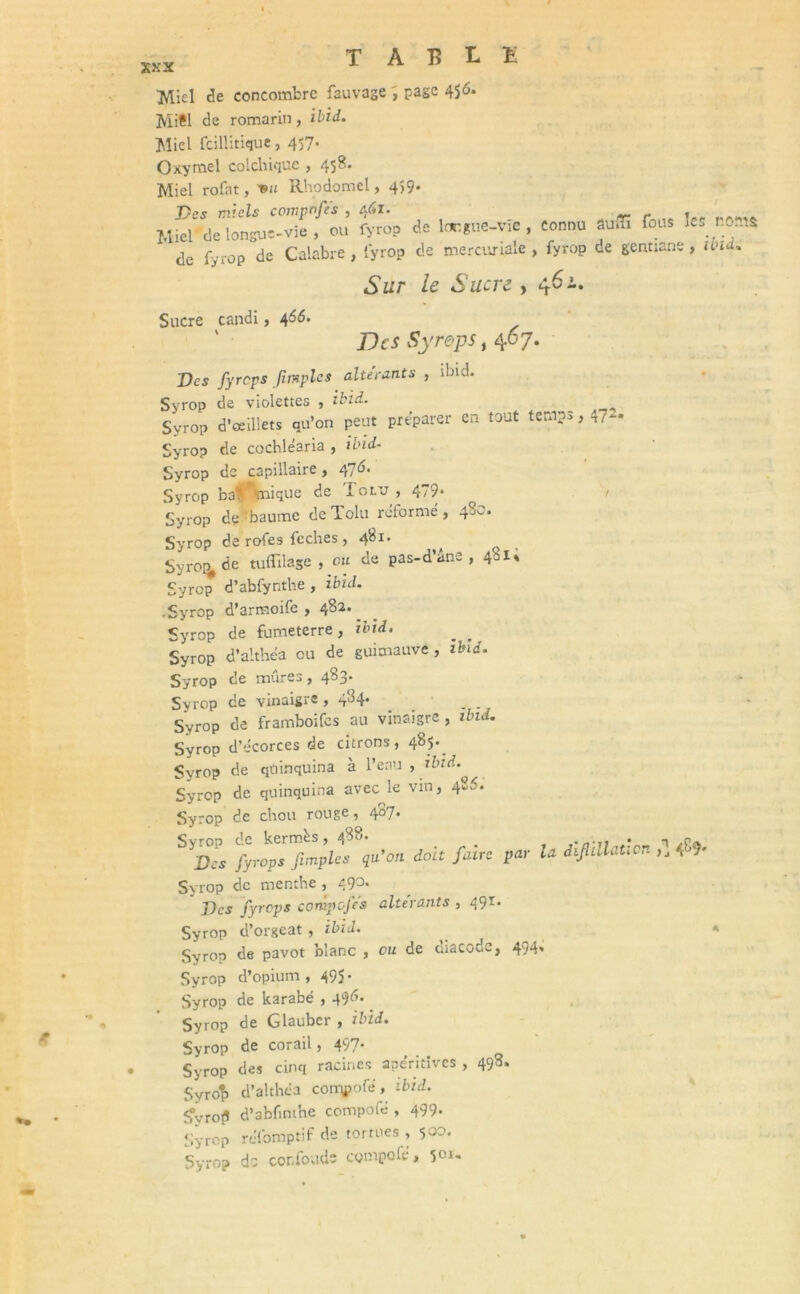 xxx TABLE
Miel de concombre ſauvage, page 456.
Miel de romarin, ibid.
Miel ſcillitique, 457.
Oxymel colchique, 458.
Miel roſat, ou Rhodomel, 459.
Des miels compoſés, 461.
Miel de longue-vie, ou ſyrop de longue-vie, connu auſſi ſous les noms
de ſyrop de Calabre, ſyrop de mercuriale, ſyrop de gentiane, ibid.
Sur le Sucre, 461.
Sucre candi, 466.
Des Syrops, 467.
Des ſyrops ſimples altérants, ibid.
Syrop de violettes, ibid.
Syrop d'œillets qu'on peut préparer en tout temps, 472.
Syrop de cochléaria, ibid.
Syrop de capillaire, 476.
Syrop balſamique de TOLU, 479.
Syrop de baume de Tolu réformé, 480.
Syrop de roſes ſeches, 481.
Syrop de tuſſilage, ou de pas-d'âne, 481.
Syrop d'abſynthe, ibid.
Syrop d'armoiſe, 482.
Syrop de fumeterre, ibid.
Syrop d'althéa ou de guimauve, ibid.
Syrop de mûres, 483.
Syrop de vinaigre, 484.
Syrop de framboiſes au vinaigre, ibid.
Syrop d'écorces de citrons, 485.
Syrop de quinquina à l'eau, ibid.
Syrop de quinquina avec le vin, 486.
Syrop de chou rouge, 487.
Syrop de kermès, 488.
Des ſyrops ſimples qu'on doit faire par la diſtillation, 489.
Syrop de menthe, 490.
Des ſyrops compoſés altérants, 491.
Syrop d'orgeat, ibid.
Syrop de pavot blanc, ou de diacode, 494.
Syrop d'opium, 495.
Syrop de karabé, 496.
Syrop de Glauber, ibid.
Syrop de corail, 497.
Syrop des cinq racines apéritives, 498.
Syrop d'althéa compoſé, ibid.
Syrop d'abſinthe compoſé, 499.
Syrop réſomptif de tortues, 500.
Syrop de conſoude compoſé, 501.